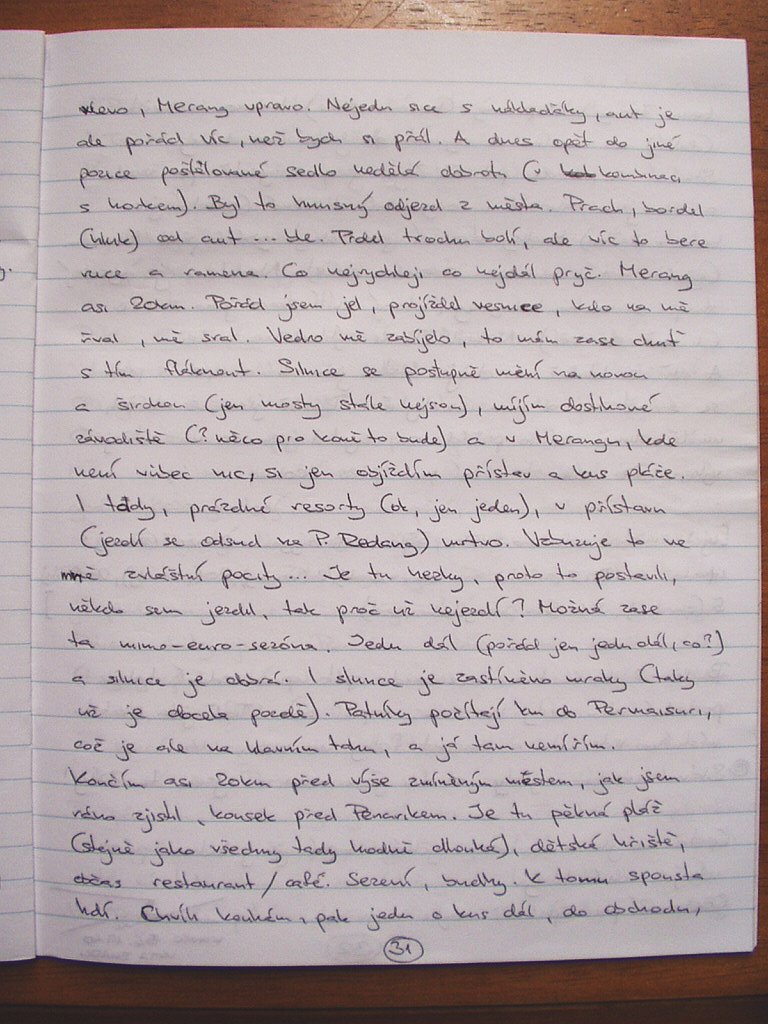 vlevo, Merang vpravo. Nejedu sice s náklaďáky, aut je
ale pořád víc, než bych si přál. A dnes opět do jiné
pozice poštělované sedlo nedělá dobrotu (v kombinaci
s horkem). Byl to hnusný odjezd z města. Prach, bordel
(hluk) od aut ... ble. Prdel trochu bolí, ale víc to bere
ruce a ramena. Co nejrychleji, co nejdál pryč. Merang
asi 20km. Pořád jsem jel, projížděl vesnice, kdo na mě
řval, mě sral. Vedro mě zabíjelo, to mám zase chuť
s tím fláknout. Silnice se postupně mění na novou
a širokou (jen mosty stále nejsou), míjím dostihové
závodiště (? něco pro koně to bude) a v Merangu, kde
není vůbec nic, si jen objíždím přístav a kus pláže.
I tady, prázdné resorty (ok, jen jeden), v přístavu
(jezdí se odsud na P. Redang) mrtvo. Vzbuzuje to ve
mně zvláštní pocity... Je tu hezky, proto to postavili,
někdo sem jezdil, tak proč už nejezdí? Možná zase
ta mimo-euro-sezóna. Jedu dál (pořád jen jedu dál, co?)
a silnice je obrá. I slunce je zastíněno mraky (taky
už je docela pozdě). Patníky počítají km do Permaisuri,
což je ale na hlavním tahu, a já tam nemířím.
Končím asi 20km před výše zmíněným městem, jak jsem
ráno zjistil, kousek před Penarikem. Je tu pěkná pláž
(stejně jako všechny tady hodně dlouhá), dětské hřiště,
občas restaurant/café. Sezení, budky. K tomu spousta
lidí. Chvíli koukám, pak jedu o kus dál, do obchodu,
31